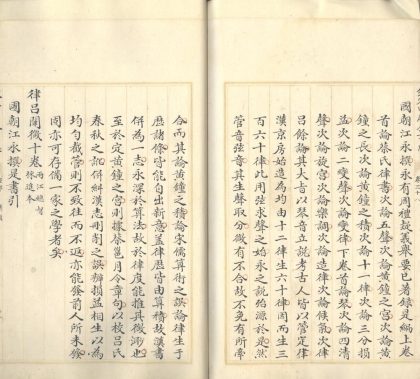 國朝江永撰永有周禮疑義舉要已著錄是編上卷
首論蔡氏律書次論五聲次論黃鐘之宮次論黃
鐘之長次論黃鐘之積次論十二律次論三分損
益次論二變聲次論變律下卷首論琴次論四清
聲次論旋宮次論樂調次論造律次論候氣次律
呂餘論其大旨以琴音立說考古人皆以管定律
漢京房始造為均由十二律生六十律因而生三
百六十律此用弦求聲之始永之說殆源於是然
管音弦音其生聲取分微有不合故不免有所牽
合而其論黃鐘之積論宋儒算術之誤論律生于
歷諸條皆能自出新意蓋律歷皆由算積故漢書
併為一志永深於算法故於律度能推其微渺也
至於定黃鐘之宮則據蔡邕月令章句以校呂氏
春秋之訛併糾漢志刪削之誤辨損益相生以為
均勻截管則不致往而不返亦能發前人所未發
固亦可存備一家之學者矣
律呂闡微十卷兩江總督採進本
國朝江永撰是書引